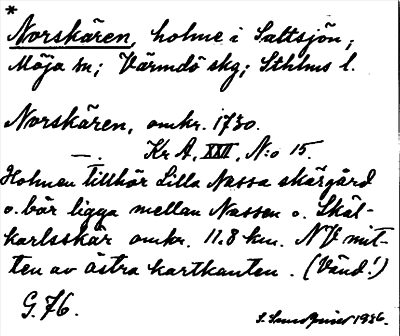 *
Norskären, holme i Saltsjön;
Möja sn; Värmdö skg; Sthlms l.
Norskären, omkr. 1730.
—. Kr A, XXII, N:o 15.
Holmen tillhör Lilla Nassa skärgård
o. bör ligga mellan Nassen o. Skäl-
karlsskär omkr. 11.8 km. NV mit-
ten av östra kartkanten. (Vänd!)
G. 76.
1936.